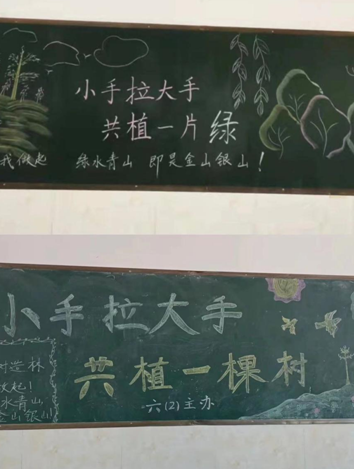 小手拉大手
共植一片绿
我做起 绿水青山 即是金山银山！
小手拉大手
共植一棵树
树造林
做起！
水青山
金山银山
六(2)主办